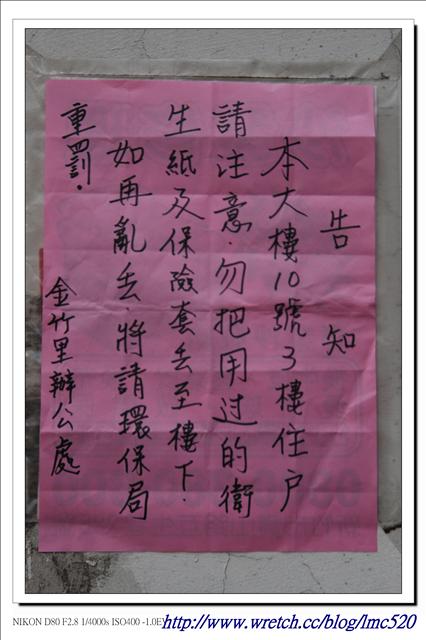 告知
本大樓10號3樓住戶
請注意.勿把用过的衛
生紙及保險套丢至樓下.
如再亂丢.將請環保局
重罰.
金竹里辦公處
NIKON D80 F2.8 1/4000s ISO400 -1.0EV
http://www.wretch.cc/blog/lmc520